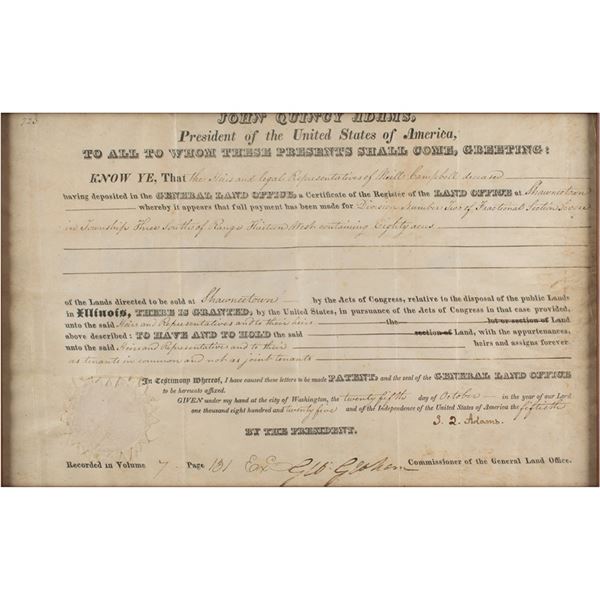 723
JOHN QUINCY ADAMS,
President of the United States of America,
TO ALL TO WHOM THESE PRESENTS SHALL COME, GREETING:
KNOW YE, That the Heirs and legal Representatives of Neill Campbell deceased
having deposited in the GENERAL LAND OFFICE, a Certificate of the Register of the LAND OFFICE at Shawneetown
whereby it appears that full payment has been made for Division Number Two of Fractional Section
in Township Three South of Range Thirteen West containing Eighty acres
of the Lands directed to be sold at Shawneetown by the Acts of Congress, relative to the disposal of the public Lands
in Illinois, THERE IS GRANTED, by the United States, in pursuance of the Acts of Congress in that case provided,
unto the said Heirs and Representatives and to their heirs the lot or section of Land
above described: TO HAVE AND TO HOLD the said section of Land, with the appurtenances,
unto the said Heirs and Representative and to their heirs and assigns forever
as tenants in common and not as joint tenants
In Testimony Whereof, I have caused these letters to be made PATENT, and the seal of the GENERAL LAND OFFICE
to be hereunto affixed.
GIVEN under my hand at the city of Washington, the twenty fifth day of October in the year of our Lord
one thousand eight hundred and twenty five and of the Independence of the United States of America the fiftieth
J. Q. Adams.
BY THE PRESIDENT.
Recorded in Volume 7 Page 131 Ex Geo: Graham Commissioner of the General Land Office.